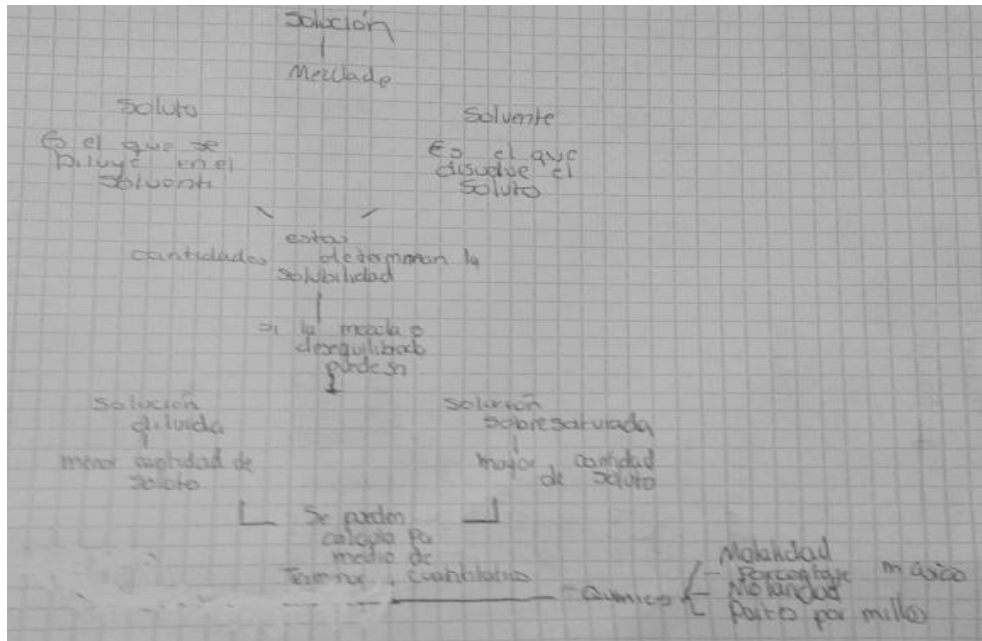 Solución
Mezclade
Soluto
Solvente
Es el que se
Diluye en el
solvente
Es el que
disuelve el
Soluto
estas
cantidades determinan la
solubilidad
si la mezcla
desequilibrada
puede ser
Solución
diluida
Solución
sobresaturada
menor cantidad de
soluto
mayor cantidad
de soluto
Se pueden
calcular
medio de
Terminos cuantitativos
Quimico
Molalidad
Porcentaje masico
Molaridad
Partes por millon